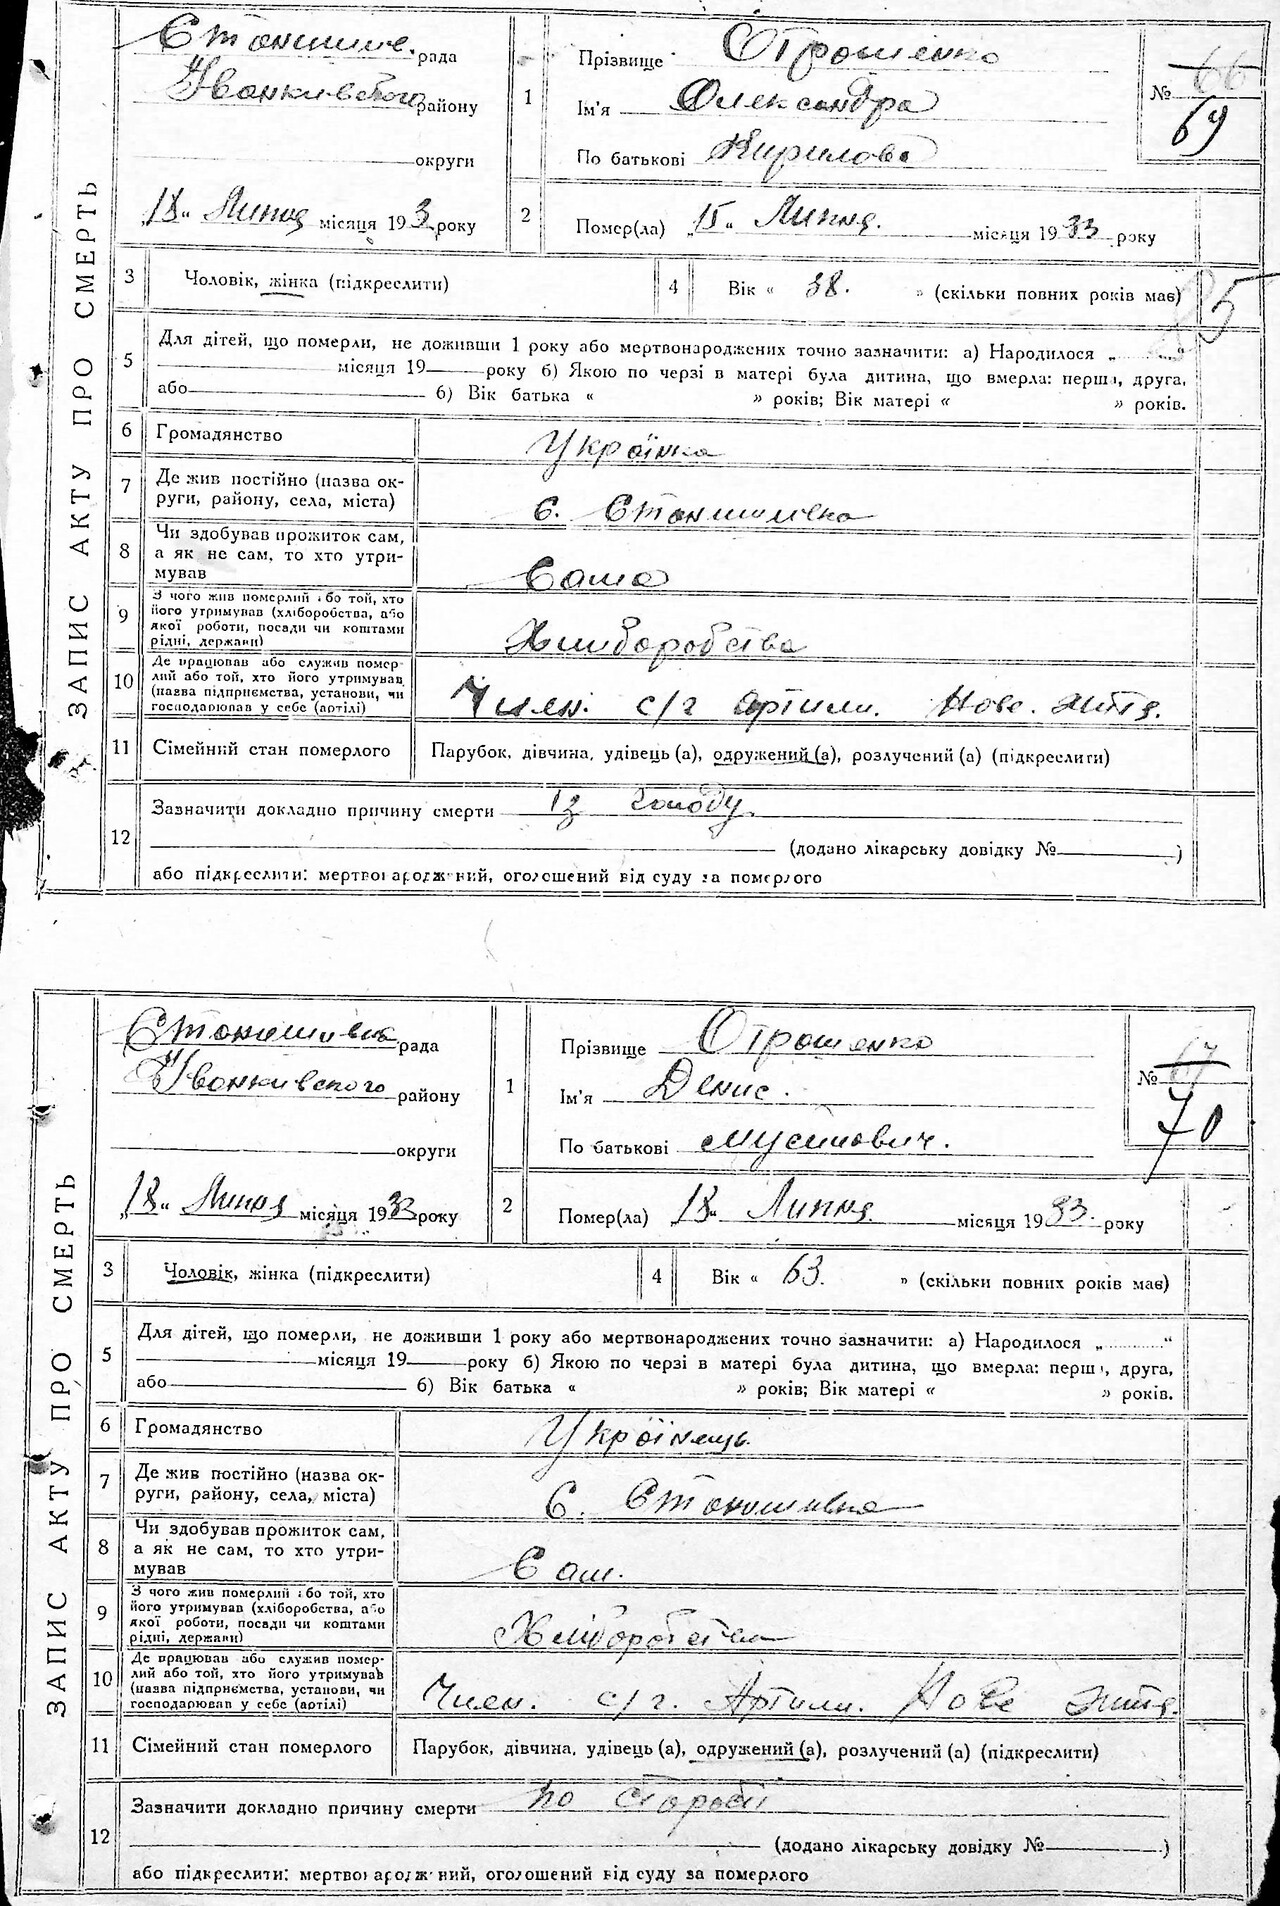 ЗАПИС АКТУ ПРО СМЕРТЬ
рада
Іванківського району
округи
„18“ Липня місяця 193 року
1
Прізвище Отрошенко
Ім'я Олександра
По батькові Кирилова
№ 66
69
2
Помер(ла) „15“ Липня. місяця 1933 року
3
Чоловік, жінка (підкреслити)
4
Вік « 38. » (скільки повних років мав)
5
Для дітей, що померли, не доживши 1 року або мертвонароджених точно зазначити: а) Народилося „ “
місяця 19 року б) Якою по черзі в матері була дитина, що вмерла: перша, друга,
або б) Вік батька « » років; Вік матері « » років.
6
Громадянство
Українка
7
Де жив постійно (назва ок-
руги, району, села, міста)
с.
8
Чи здобував прожиток сам,
а як не сам, то хто утри-
мував
Сама
9
З чого жив померлий або той, хто
його утримував (хліборобства, або
якої роботи, посади чи коштами
рідні, держави)
Хліборобства
10
Де працював або служив помер-
лий або той, хто його утримував
(назва підприємства, установи, чи
господарював у себе (артілі)
Член. с/г артили. Нове. життя.
11
Сімейний стан померлого
Парубок, дівчина, удівець (а), одружений (а), розлучений (а) (підкреслити)
12
Зазначити докладно причину смерти Із голоду.
(додано лікарську довідку № )
або підкреслити: мертвонароджений, оголошений від суду за померлого
ЗАПИС АКТУ ПРО СМЕРТЬ
рада
Іванківського району
округи
„18“ Липня місяця 1933 року
1
Прізвище Отрошенко
Ім'я Денис.
По батькові Мусійович.
№ 67
70
2
Помер(ла) „18“ Липня. місяця 1933. року
3
Чоловік, жінка (підкреслити)
4
Вік « 63. » (скільки повних років мав)
5
Для дітей, що померли, не доживши 1 року або мертвонароджених точно зазначити: а) Народилося „ “
місяця 19 року б) Якою по черзі в матері була дитина, що вмерла: перша, друга,
або б) Вік батька « » років; Вік матері « » років.
6
Громадянство
Українець
7
Де жив постійно (назва ок-
руги, району, села, міста)
с.
8
Чи здобував прожиток сам,
а як не сам, то хто утри-
мував
Сам.
9
З чого жив померлий або той, хто
його утримував (хліборобства, або
якої роботи, посади чи коштами
рідні, держави)
10
Де працював або служив помер-
лий або той, хто його утримував
(назва підприємства, установи, чи
господарював у себе (артілі)
Член. с/г. Артили. Нове життя.
11
Сімейний стан померлого
Парубок, дівчина, удівець (а), одружений (а), розлучений (а) (підкреслити)
12
Зазначити докладно причину смерти по старості
(додано лікарську довідку № )
або підкреслити: мертвонароджений, оголошений від суду за померлого